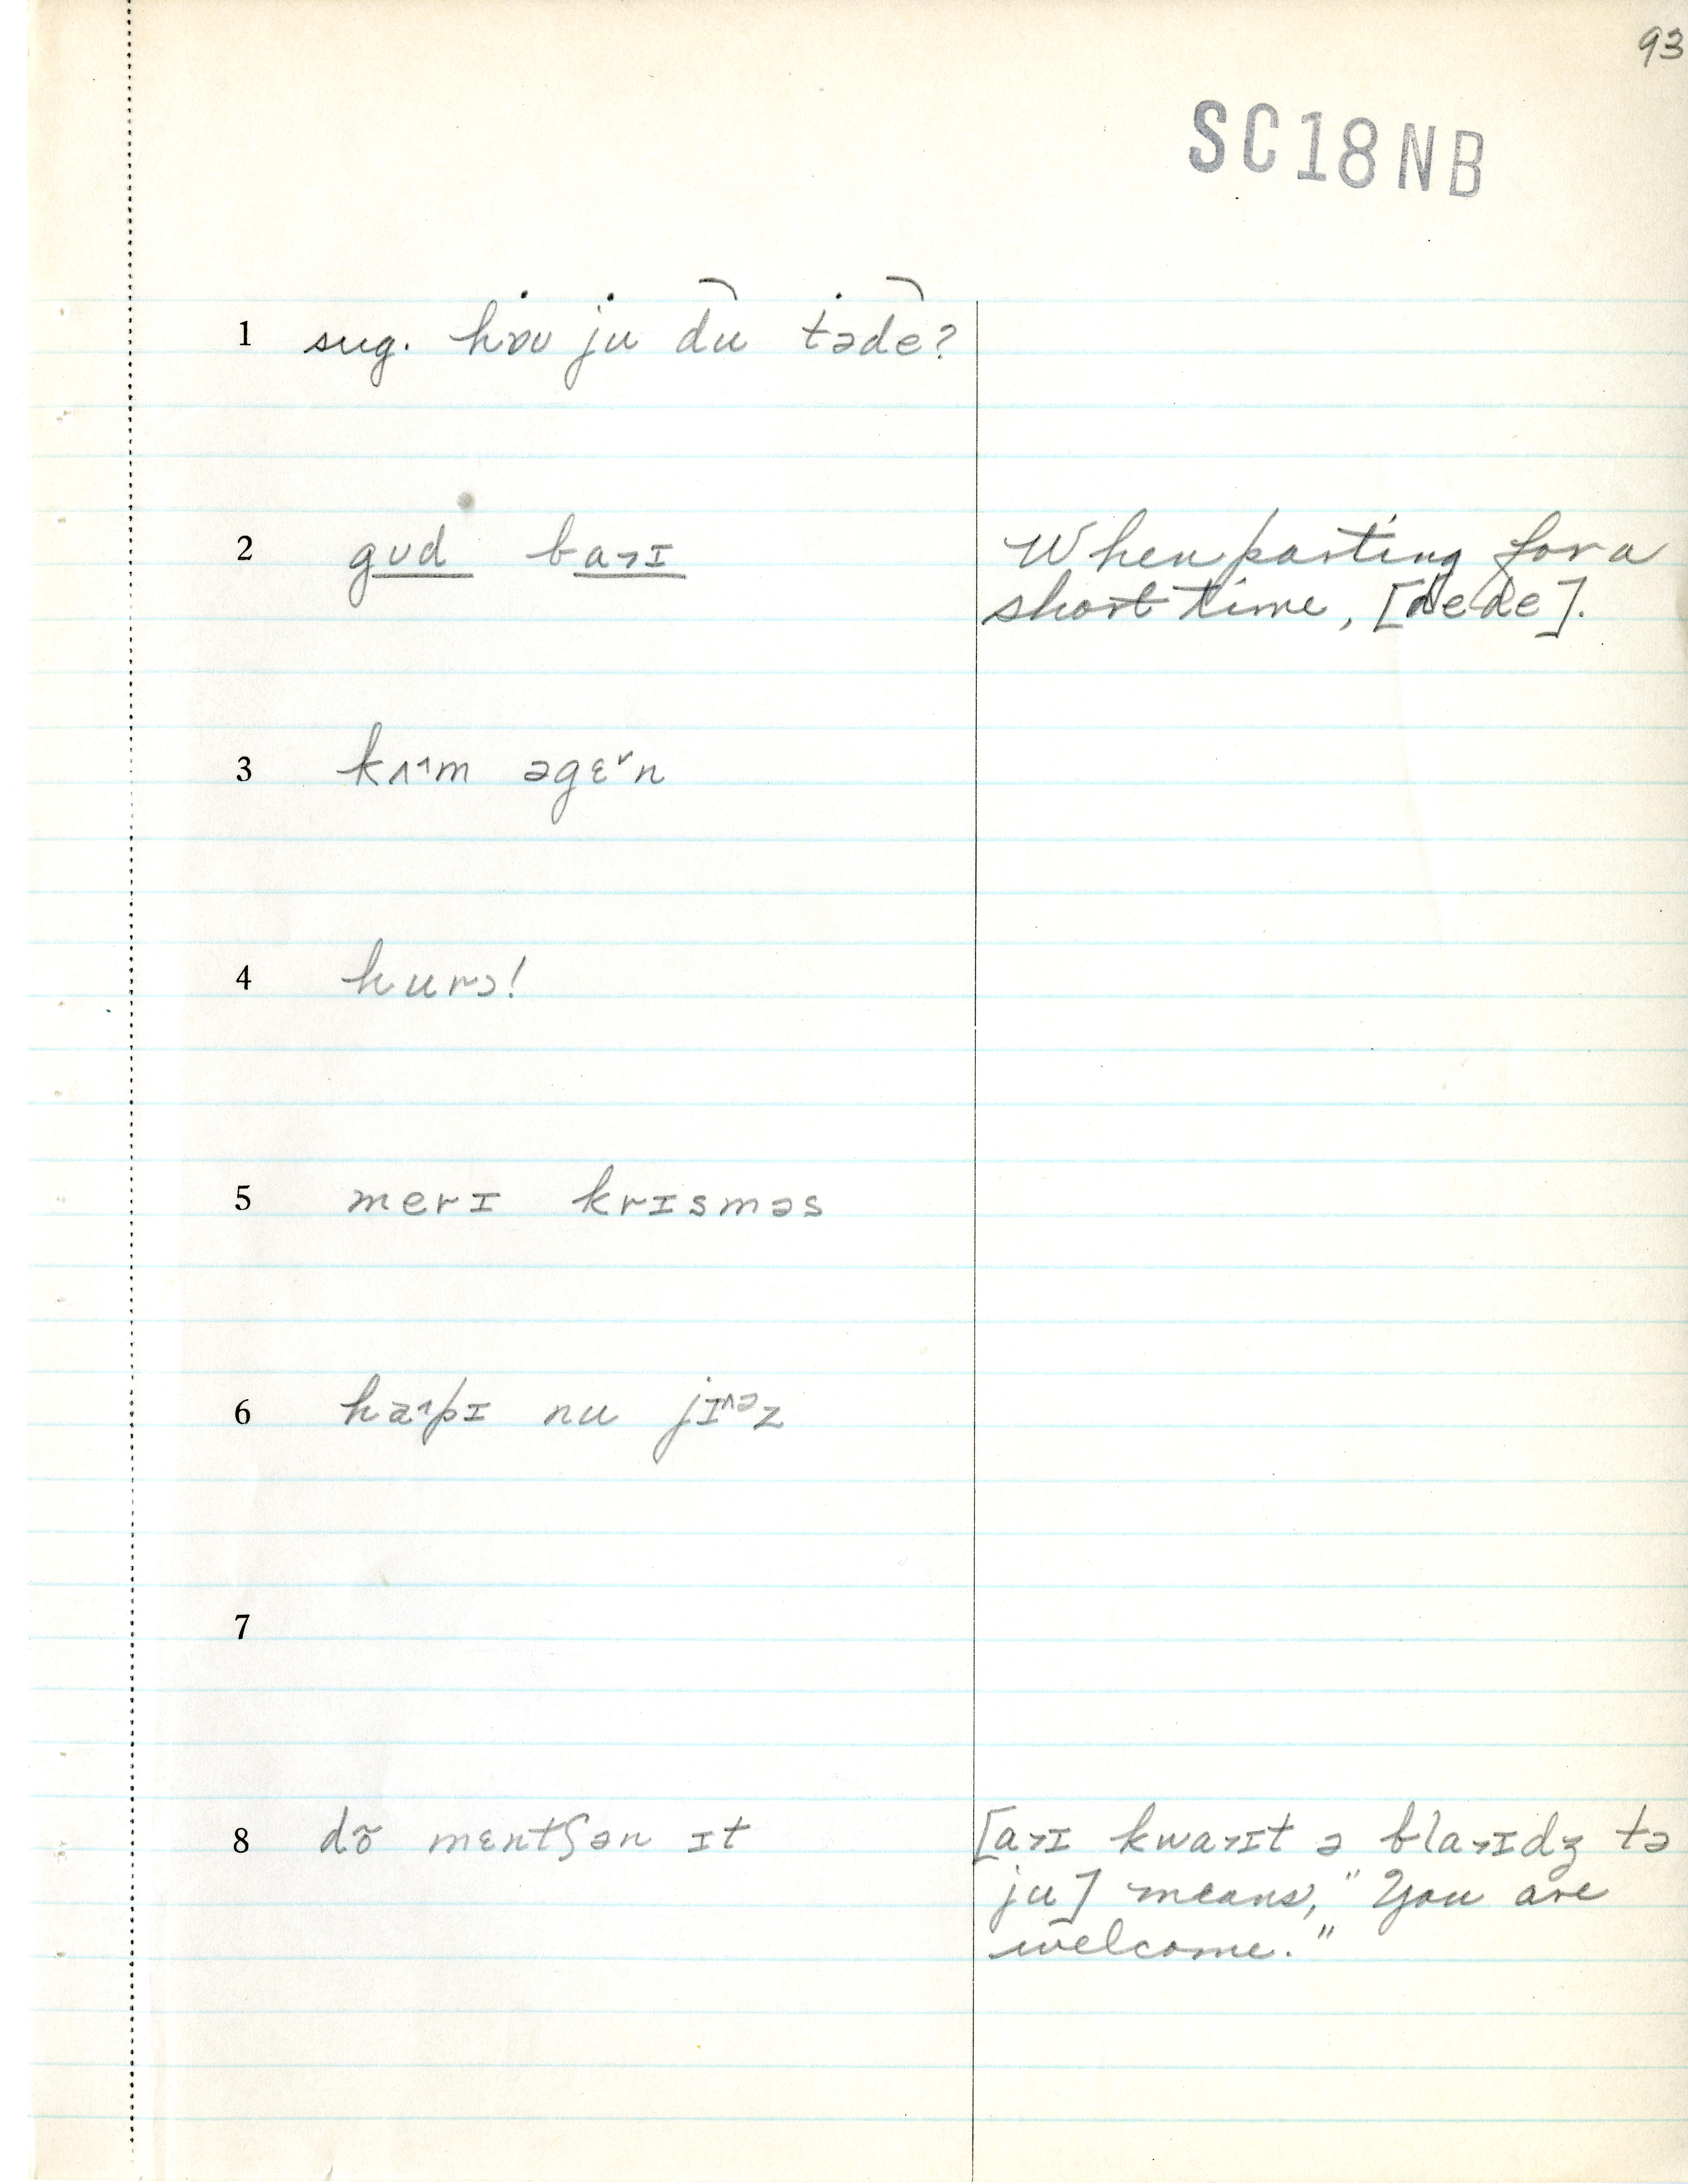 93
SC18NB
1 sug. hɒʊ ju du təde?
2 gʊd ba˃ɪ
When parting for a
short time, [dede].
3 kʌ˄m əgɛ˅n
4 hurɔ!
5 merɪ krɪsməs
6 ha˄pɪ nu jɪ˄əz
7
8 dõ mɛntʃən ɪt
[a˃ɪ kwa˃ɪt ə bla˃ɪdʒ tə
ju] means, "You are
welcome."